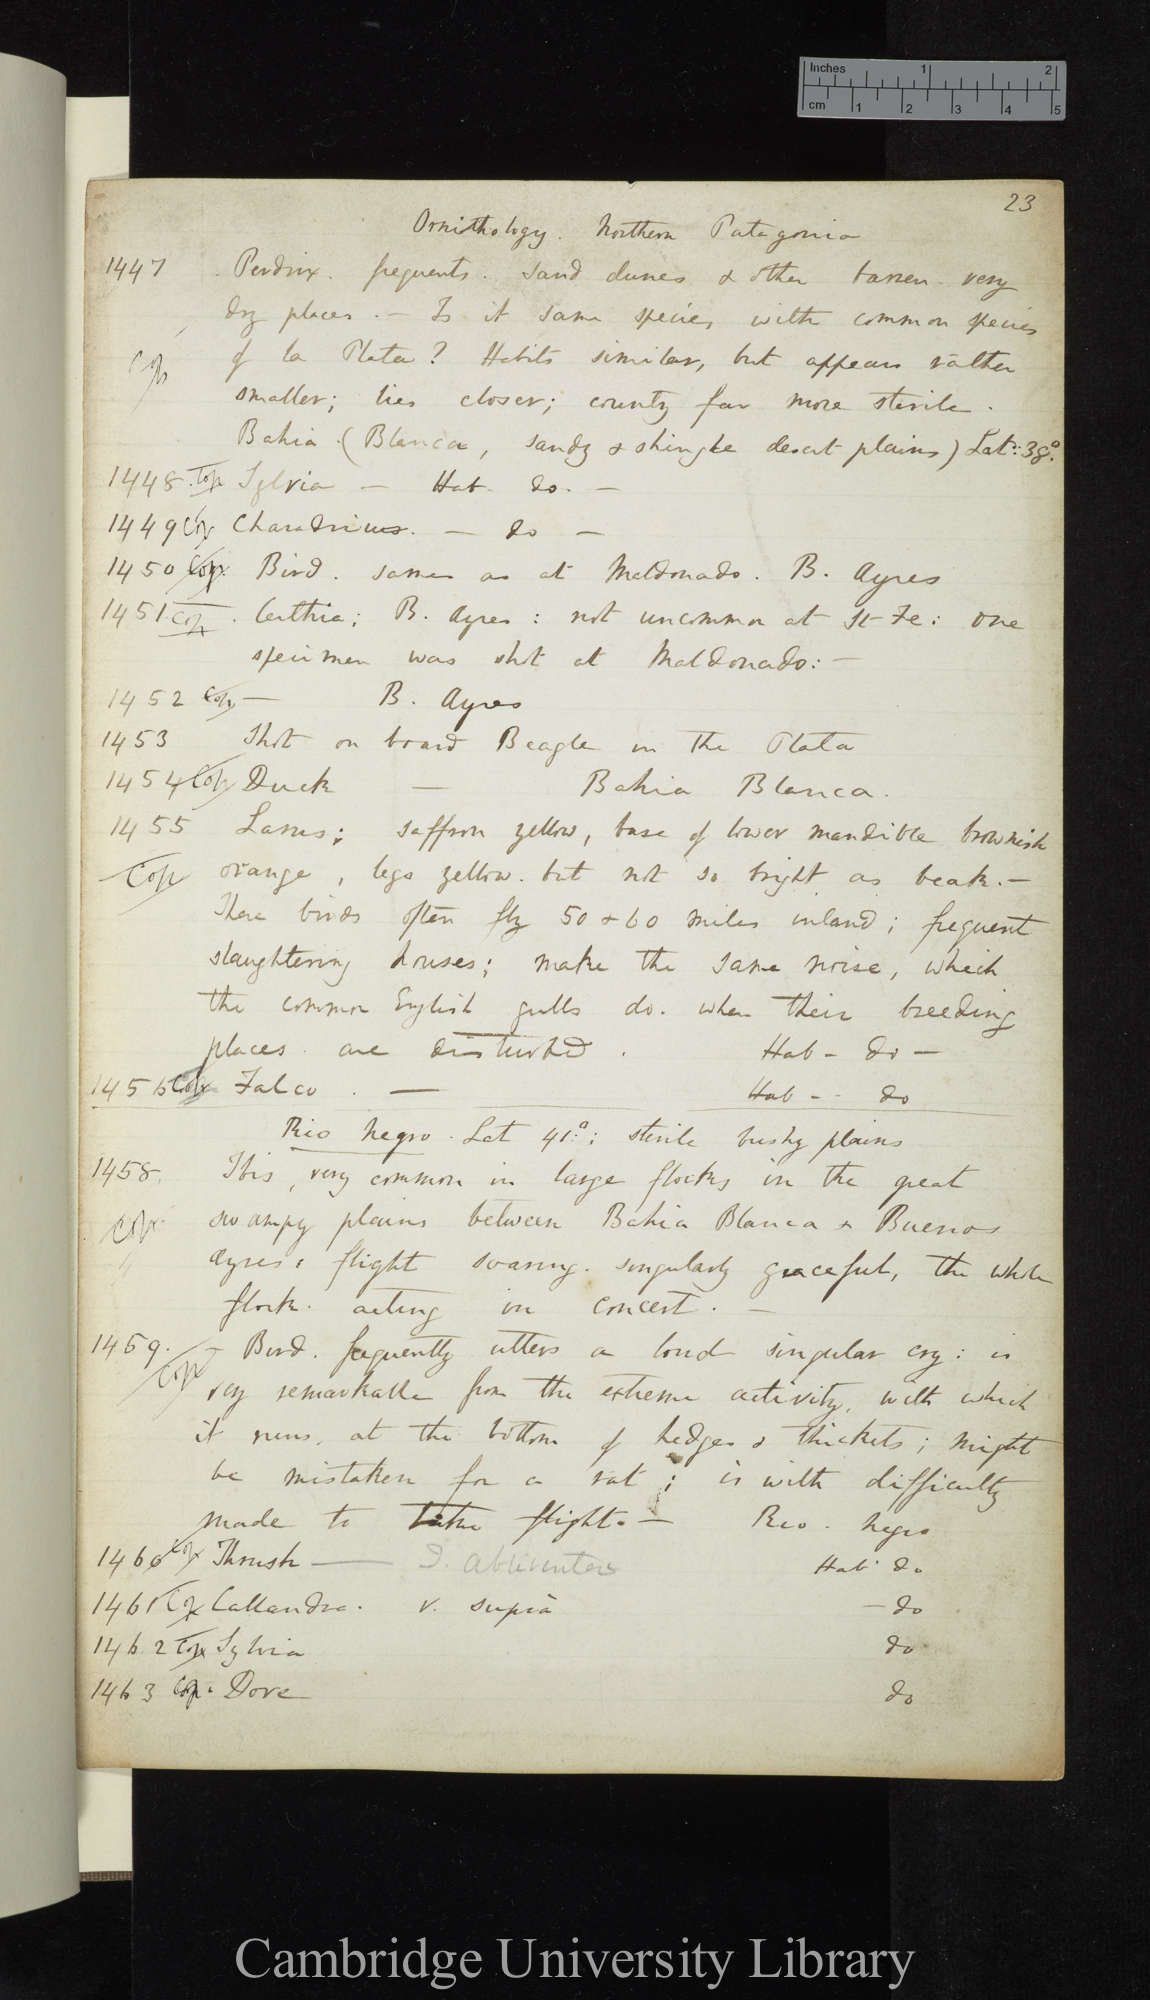 Inches 1 2
cm 1 2 3 4 5
23
Ornithology. Northern Patagonia
1447 Perdrix. frequents. sand dunes & other barren. very
dry places. — Is it same species with common species
Cop of la Plata? Habits similar, but appears rather
smaller; lies closer; country far more sterile.
Bahia (Blanca, sandy & shingle desert plains) Lat: 38°.
1448. Cop Sylvia — Hab. do. —
1449 Cop Charadrius. — do —
1450 Cop Bird. same as at Maldonado. B. Ayres
1451 Cop. Certhia; B. Ayres: not uncommon at St Fe: one
specimen was shot at Maldonado: —
1452 Cop — B. Ayres
1453 Shot on board Beagle in the Plata
1454 Cop Duck — Bahia Blanca.
1455 Larus; saffron yellow, base of lower mandible brownish
Cop orange, legs yellow. but not so bright as beak. —
These birds often fly 50 & 60 miles inland; frequent
slaughtering houses; make the same noise, which
the common English gulls do. when their breeding
places are disturbed. Hab — do —
1456 Cop Falco. — Hab — do
Rio Negro. Lat 41°: sterile bushy plains
1458. Ibis, very common in large flocks in the great
Cop swampy plains between Bahia Blanca & Buenos
Ayres: flight soaring. singularly graceful, the whole
flock. acting in concert. —
1459. Cop — Bird. frequently utters a loud singular cry: is
very remarkable from the extreme activity, with which
it runs, at the bottom of hedges & thickets; might
be mistaken for a rat; is with difficulty
made to take flight. — Rio. Negro
1460 Cop Thrush — Hab do
1461 Cop Callandra. v. supra — do
1462 Cop Sylvia do
1463 Cop. Dove do
Cambridge University Library